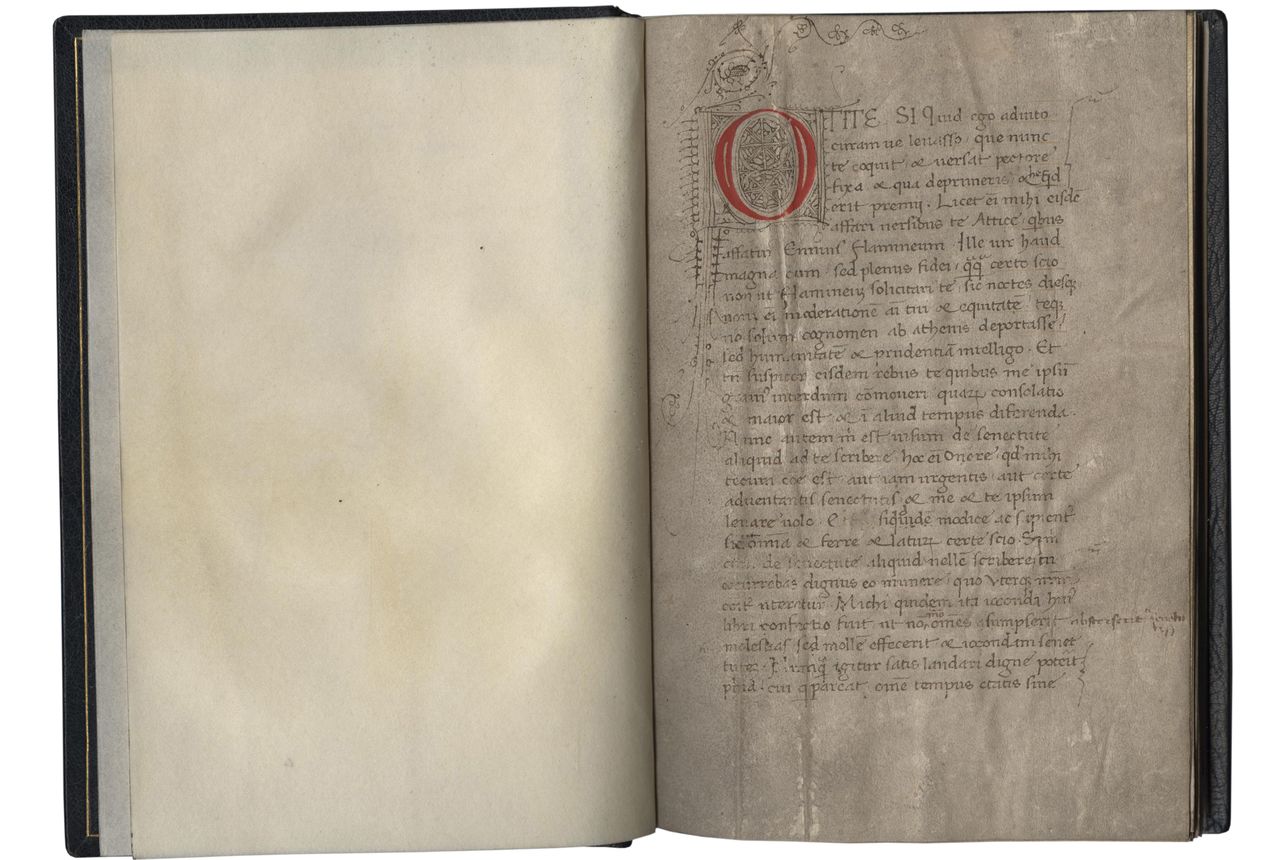 OTITE SI Quid ego adiuto
curam ve levasso que nunc
te coquit & versat pectore
fixa & qua deprimeris & hec qd
erit premij. Licet ei mihi eisdē
affari versibus te Attice qbus
affatur Ennius Flamineum Ille vir haud
magna cum sed plenus fidei certo scio
non ut Flamineū solicitari te sic noctes diesqꝫ
novi ei moderationē ai tui & equitatē teqꝫ
nō solum cognomen ab athenis deportasse
sed humanitatē & prudentiā intelligo. Et
tn suspicor eisdem rebus te quibus me ipsū
interdum cōmoveri quarꝝ consolatio
& maior est & ī aliud tempus diferenda.
Nunc autem m est visum de senectute
aliquid ad te scribere hoc ei onere qd mihi
tecum coē est aut iam urgentis aut certe
adventantis senectutis & me & te ipsum
levare volo siquidē modice ac
sic omnia & ferre & laturꝝ certe scio.
de senectute aliquid vellē scribere tu
occurrebas dignus eo munere quo uterqꝫ nrm
uteratur. Michi quidem ita iocunda hui
libri confectio fuit ut nō mō omēs absterserit
molestias sed mollē effecerit & iocondam senec
tutē. igitur satis laudari digne poterit
phia cui q pareat omē tempus etatis sine